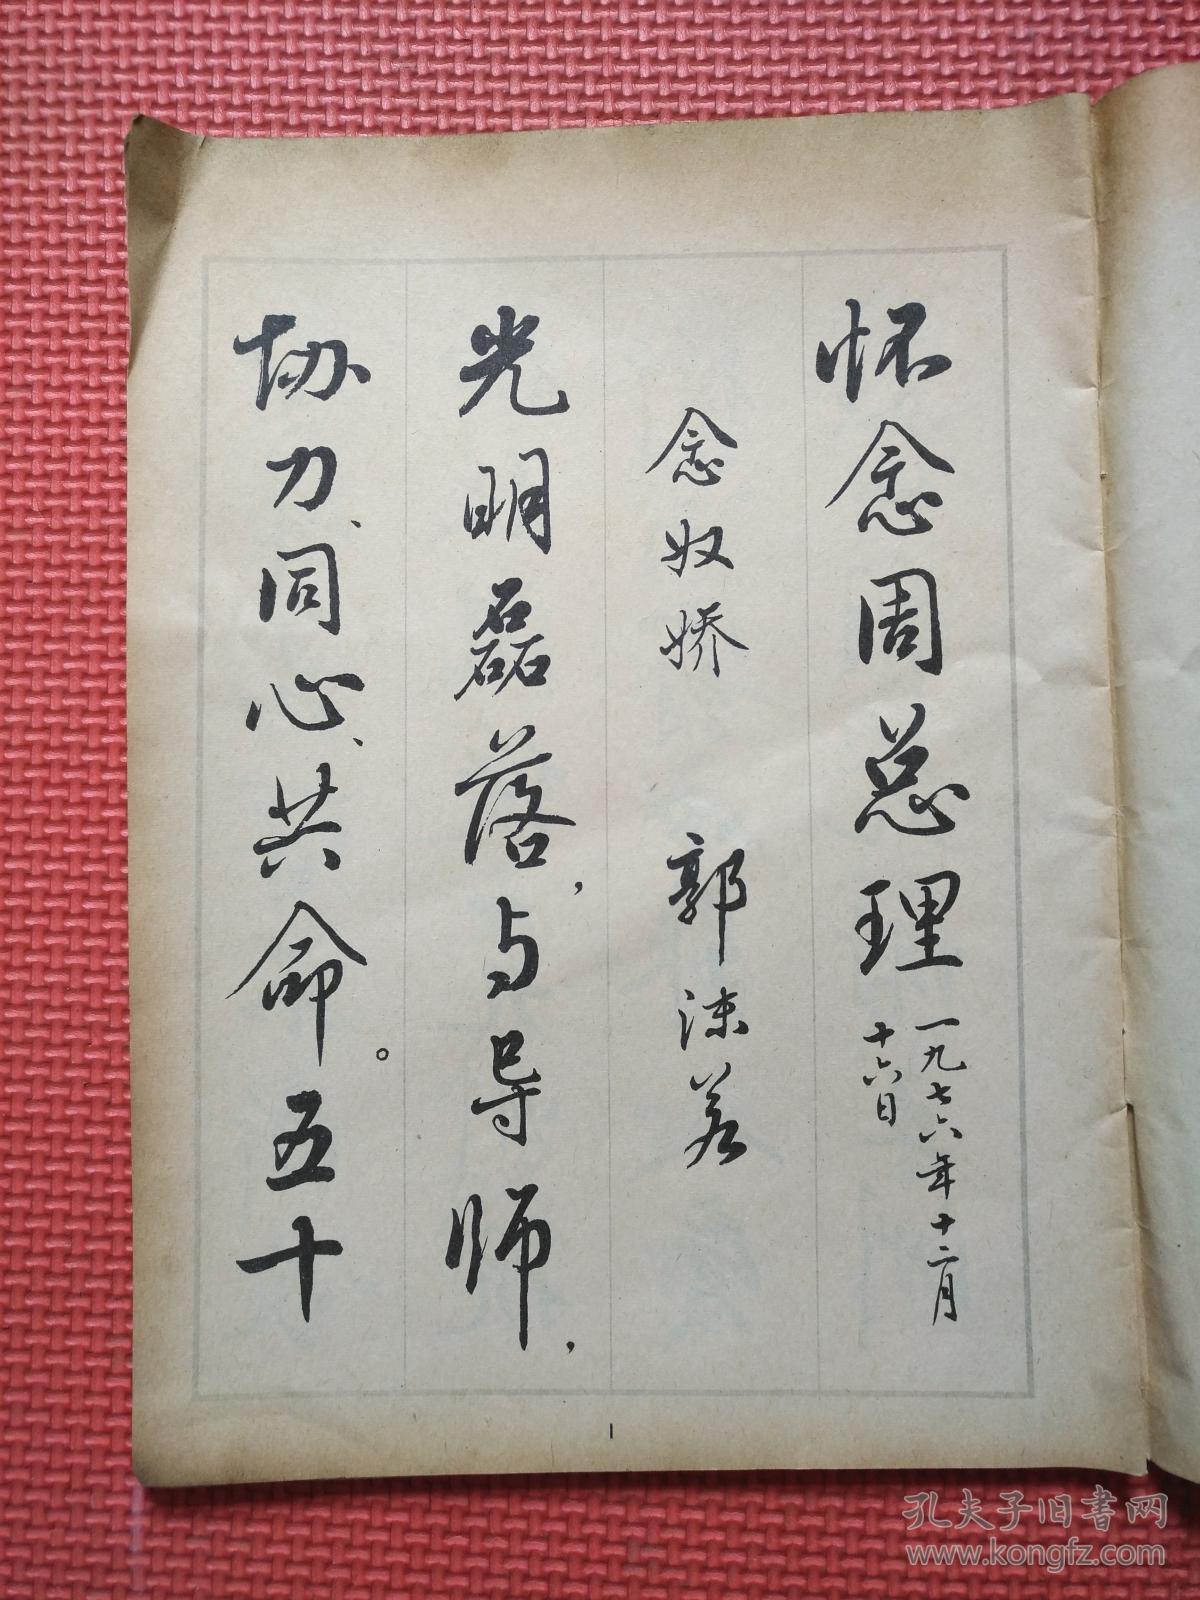 怀念周总理 一九七六年十二月
十六日
念奴娇 郭沫若
光明磊落，与导师，
协力、同心、共命。五十
1
孔夫子旧書网
www.kongfz.com